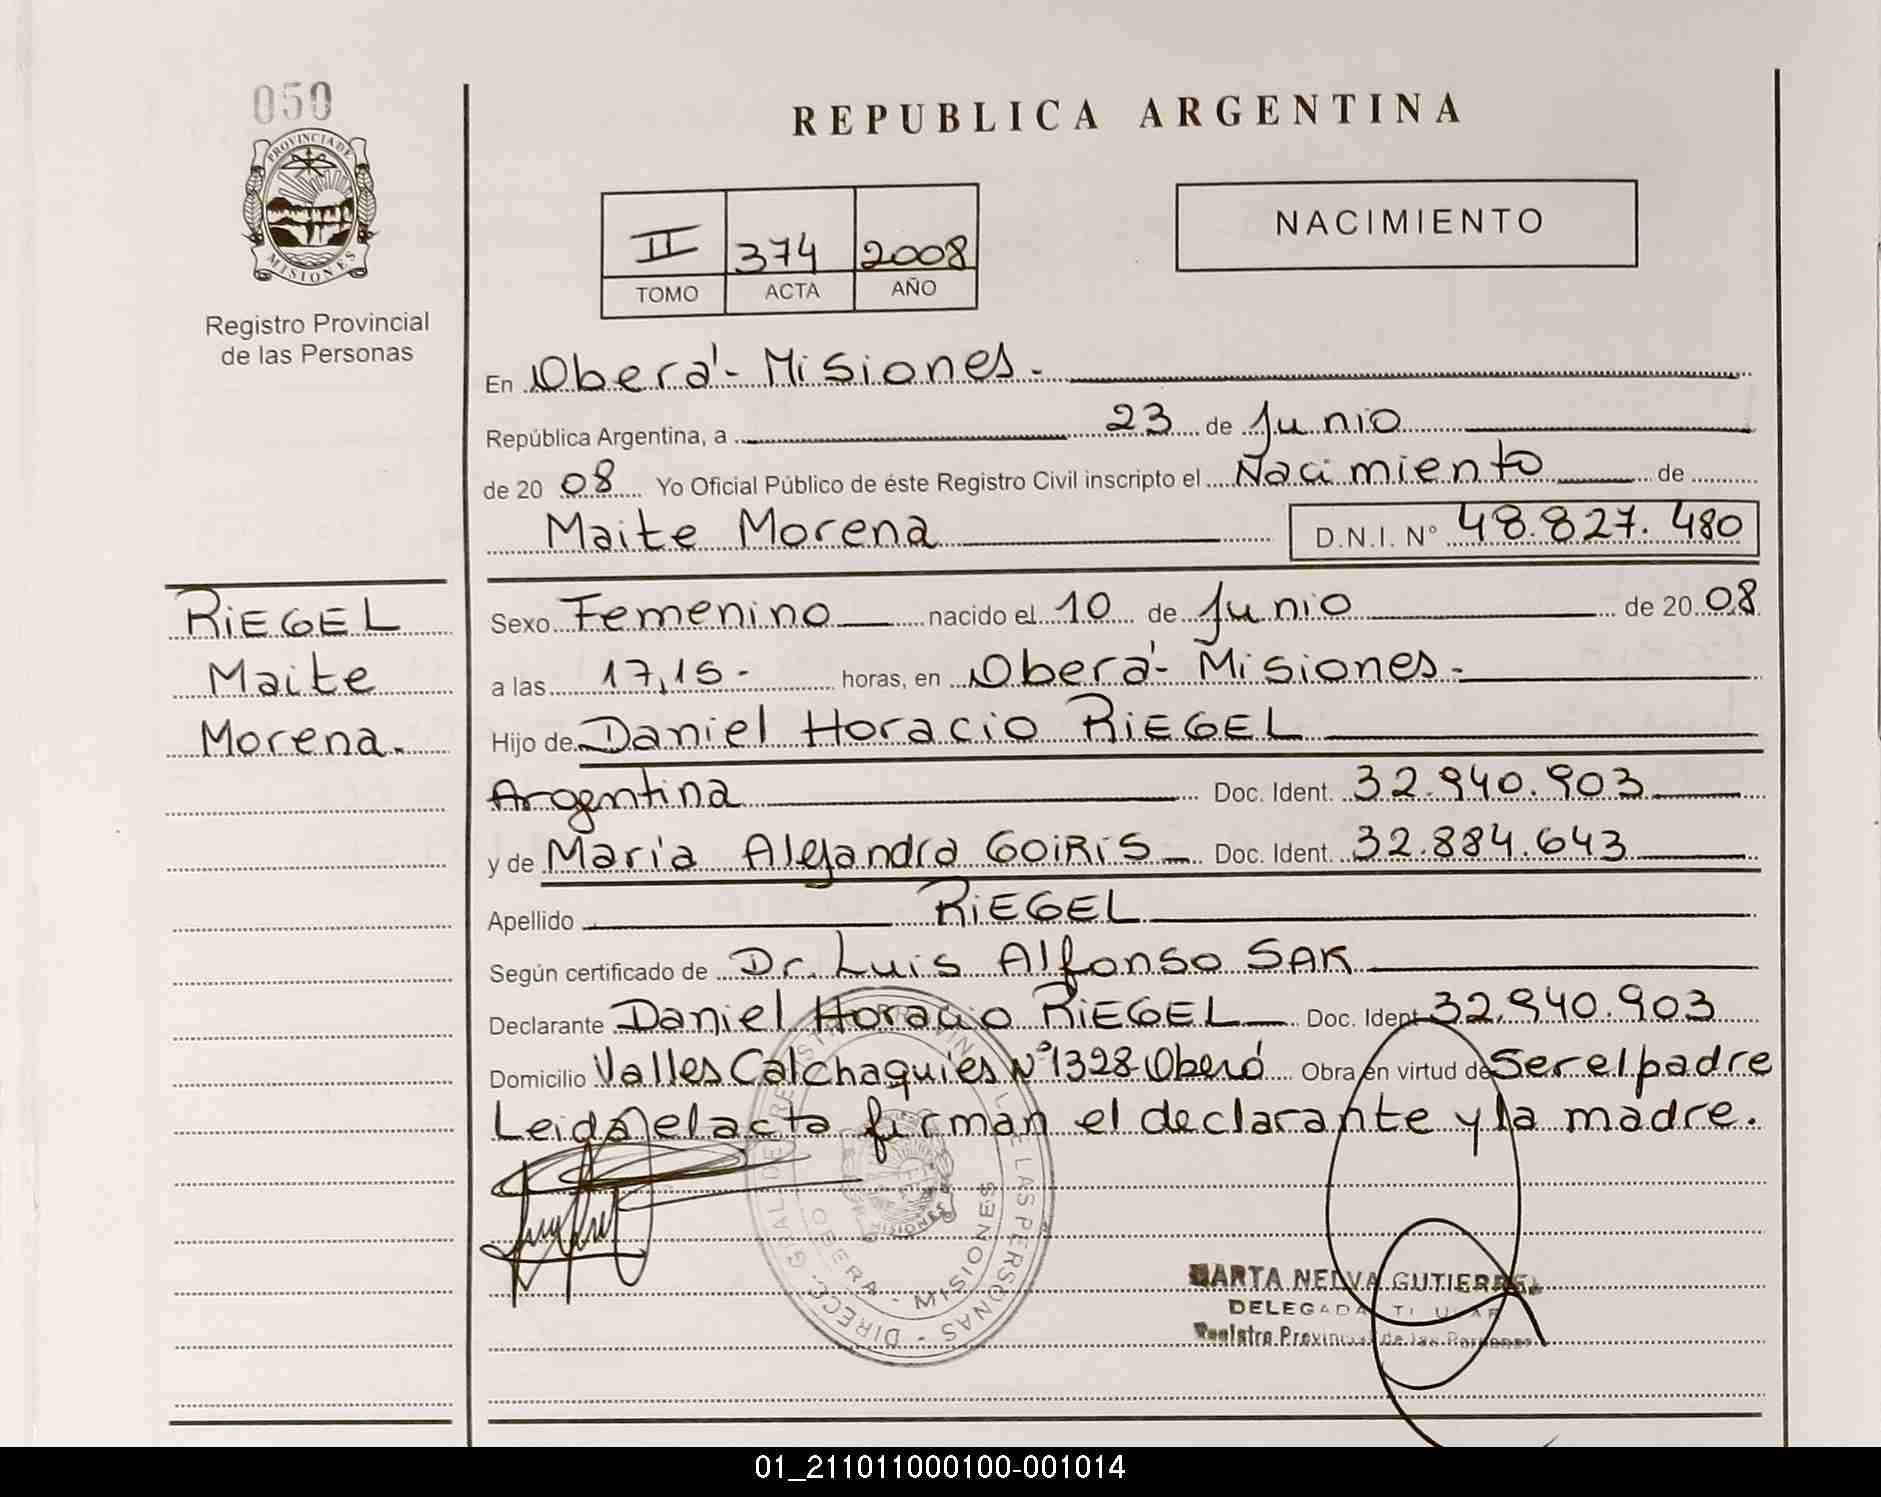 050
PROVINCIA DE
MISIONES
Registro Provincial
de las Personas
REPUBLICA ARGENTINA
II 374 2008
TOMO ACTA AÑO
NACIMIENTO
En Oberá - Misiones.
República Argentina, a 23 de Junio
de 20 08 Yo Oficial Público de éste Registro Civil inscripto el Nacimiento de
Maite Morena D.N.I. N° 48.827.480
RIEGEL
Maite
Morena.
Sexo Femenino nacido el 10 de Junio de 20 08
a las 17,15 - horas, en Oberá - Misiones.
Hijo de Daniel Horacio RIEGEL
Argentina Doc. Ident. 32.940.903
y de María Alejandra GOIRIS Doc. Ident. 32.884.643
Apellido RIEGEL
Según certificado de Dr. Luis Alfonso SAK
Declarante Daniel Horacio RIEGEL Doc. Ident. 32.940.903
Domicilio Valles Calchaquíes N° 1328 Oberá Obra en virtud de Ser el padre
Leida el acta firman el declarante y la madre.
OBERA - MISIONES
MARTA NELVA GUTIERREZ
DELEGADA TITULAR
Registro Provincial de las Personas
01_211011000100-001014